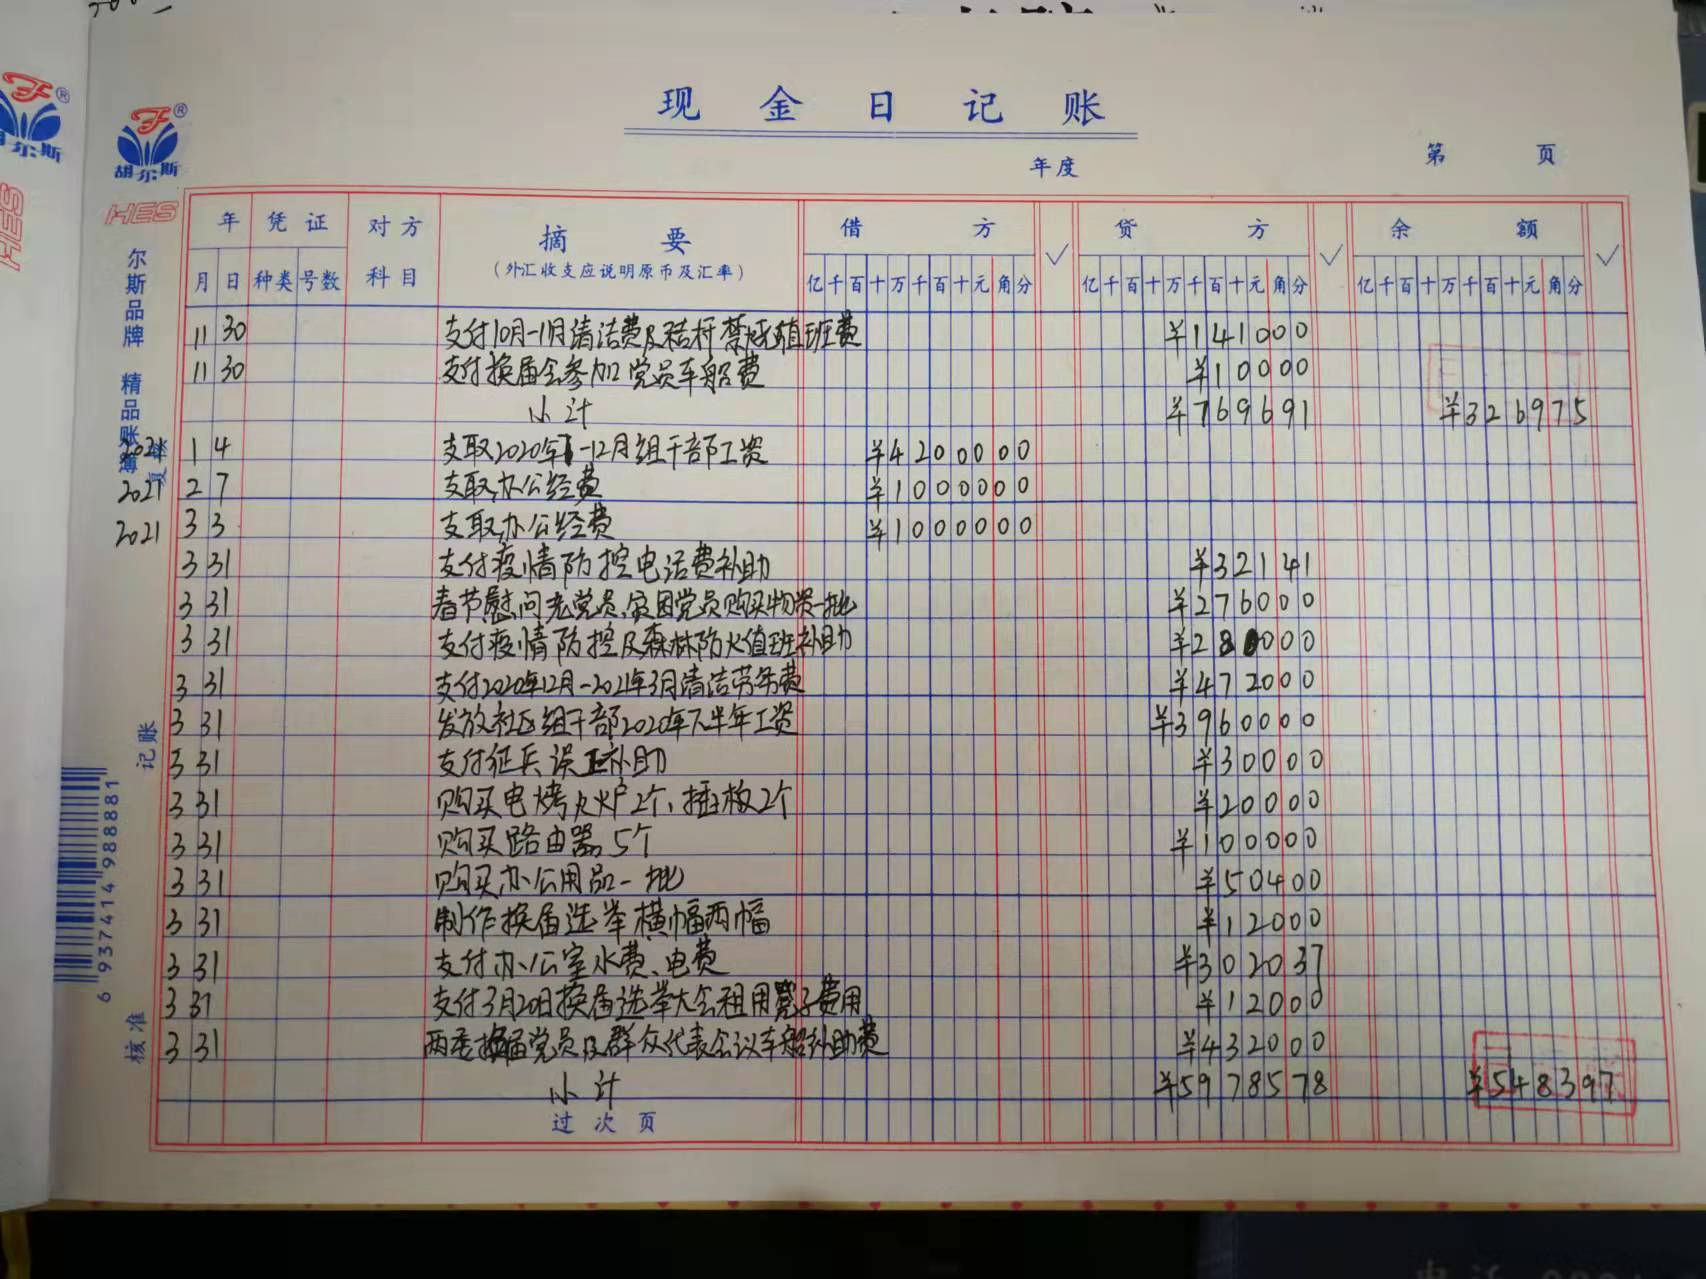 现 金 日 记 账
年度
第 页
胡尔斯
胡尔斯
HES
HES
尔斯品牌 精品账簿
记账
核准
6 937414 988881
年 凭证 对方 摘 要 借 方 ✓ 贷 方 ✓ 余 额 ✓
月 日 种类 号数 科目 (外汇收支应说明原币及汇率) 亿千百十万千百十元角分 亿千百十万千百十元角分 亿千百十万千百十元角分
11 30 支付10月-11月清洁费及秸秆禁烧值班费 ¥141000
11 30 支付换届会参加党员车船费 ¥10000
小计 ¥769691 ¥326975
2021 1 4 支取2020年1-12月组干部工资 ¥4200000
2021 2 7 支取办公经费 ¥1000000
2021 3 3 支取办公经费 ¥1000000
3 31 支付疫情防控电话费补助 ¥32141
3 31 春节慰问老党员、贫困党员购买物资一批 ¥276000
3 31 支付疫情防控及森林防火值班补助 ¥280000
3 31 支付2020年12月-2021年3月清洁劳务费 ¥472000
3 31 发放社区组干部2020年下半年工资 ¥3960000
3 31 支付征兵误工补助 ¥30000
3 31 购买电烤火炉2个、插板2个 ¥20000
3 31 购买路由器5个 ¥100000
3 31 购买办公用品一批 ¥50400
3 31 制作换届选举横幅两幅 ¥12000
3 31 支付办公室水费、电费 ¥302037
3 31 支付3月20日换届选举大会租用凳子费用 ¥12000
3 31 两委换届党员及群众代表会议车船补助费 ¥432000
小计 ¥5978578 ¥548397
过次页